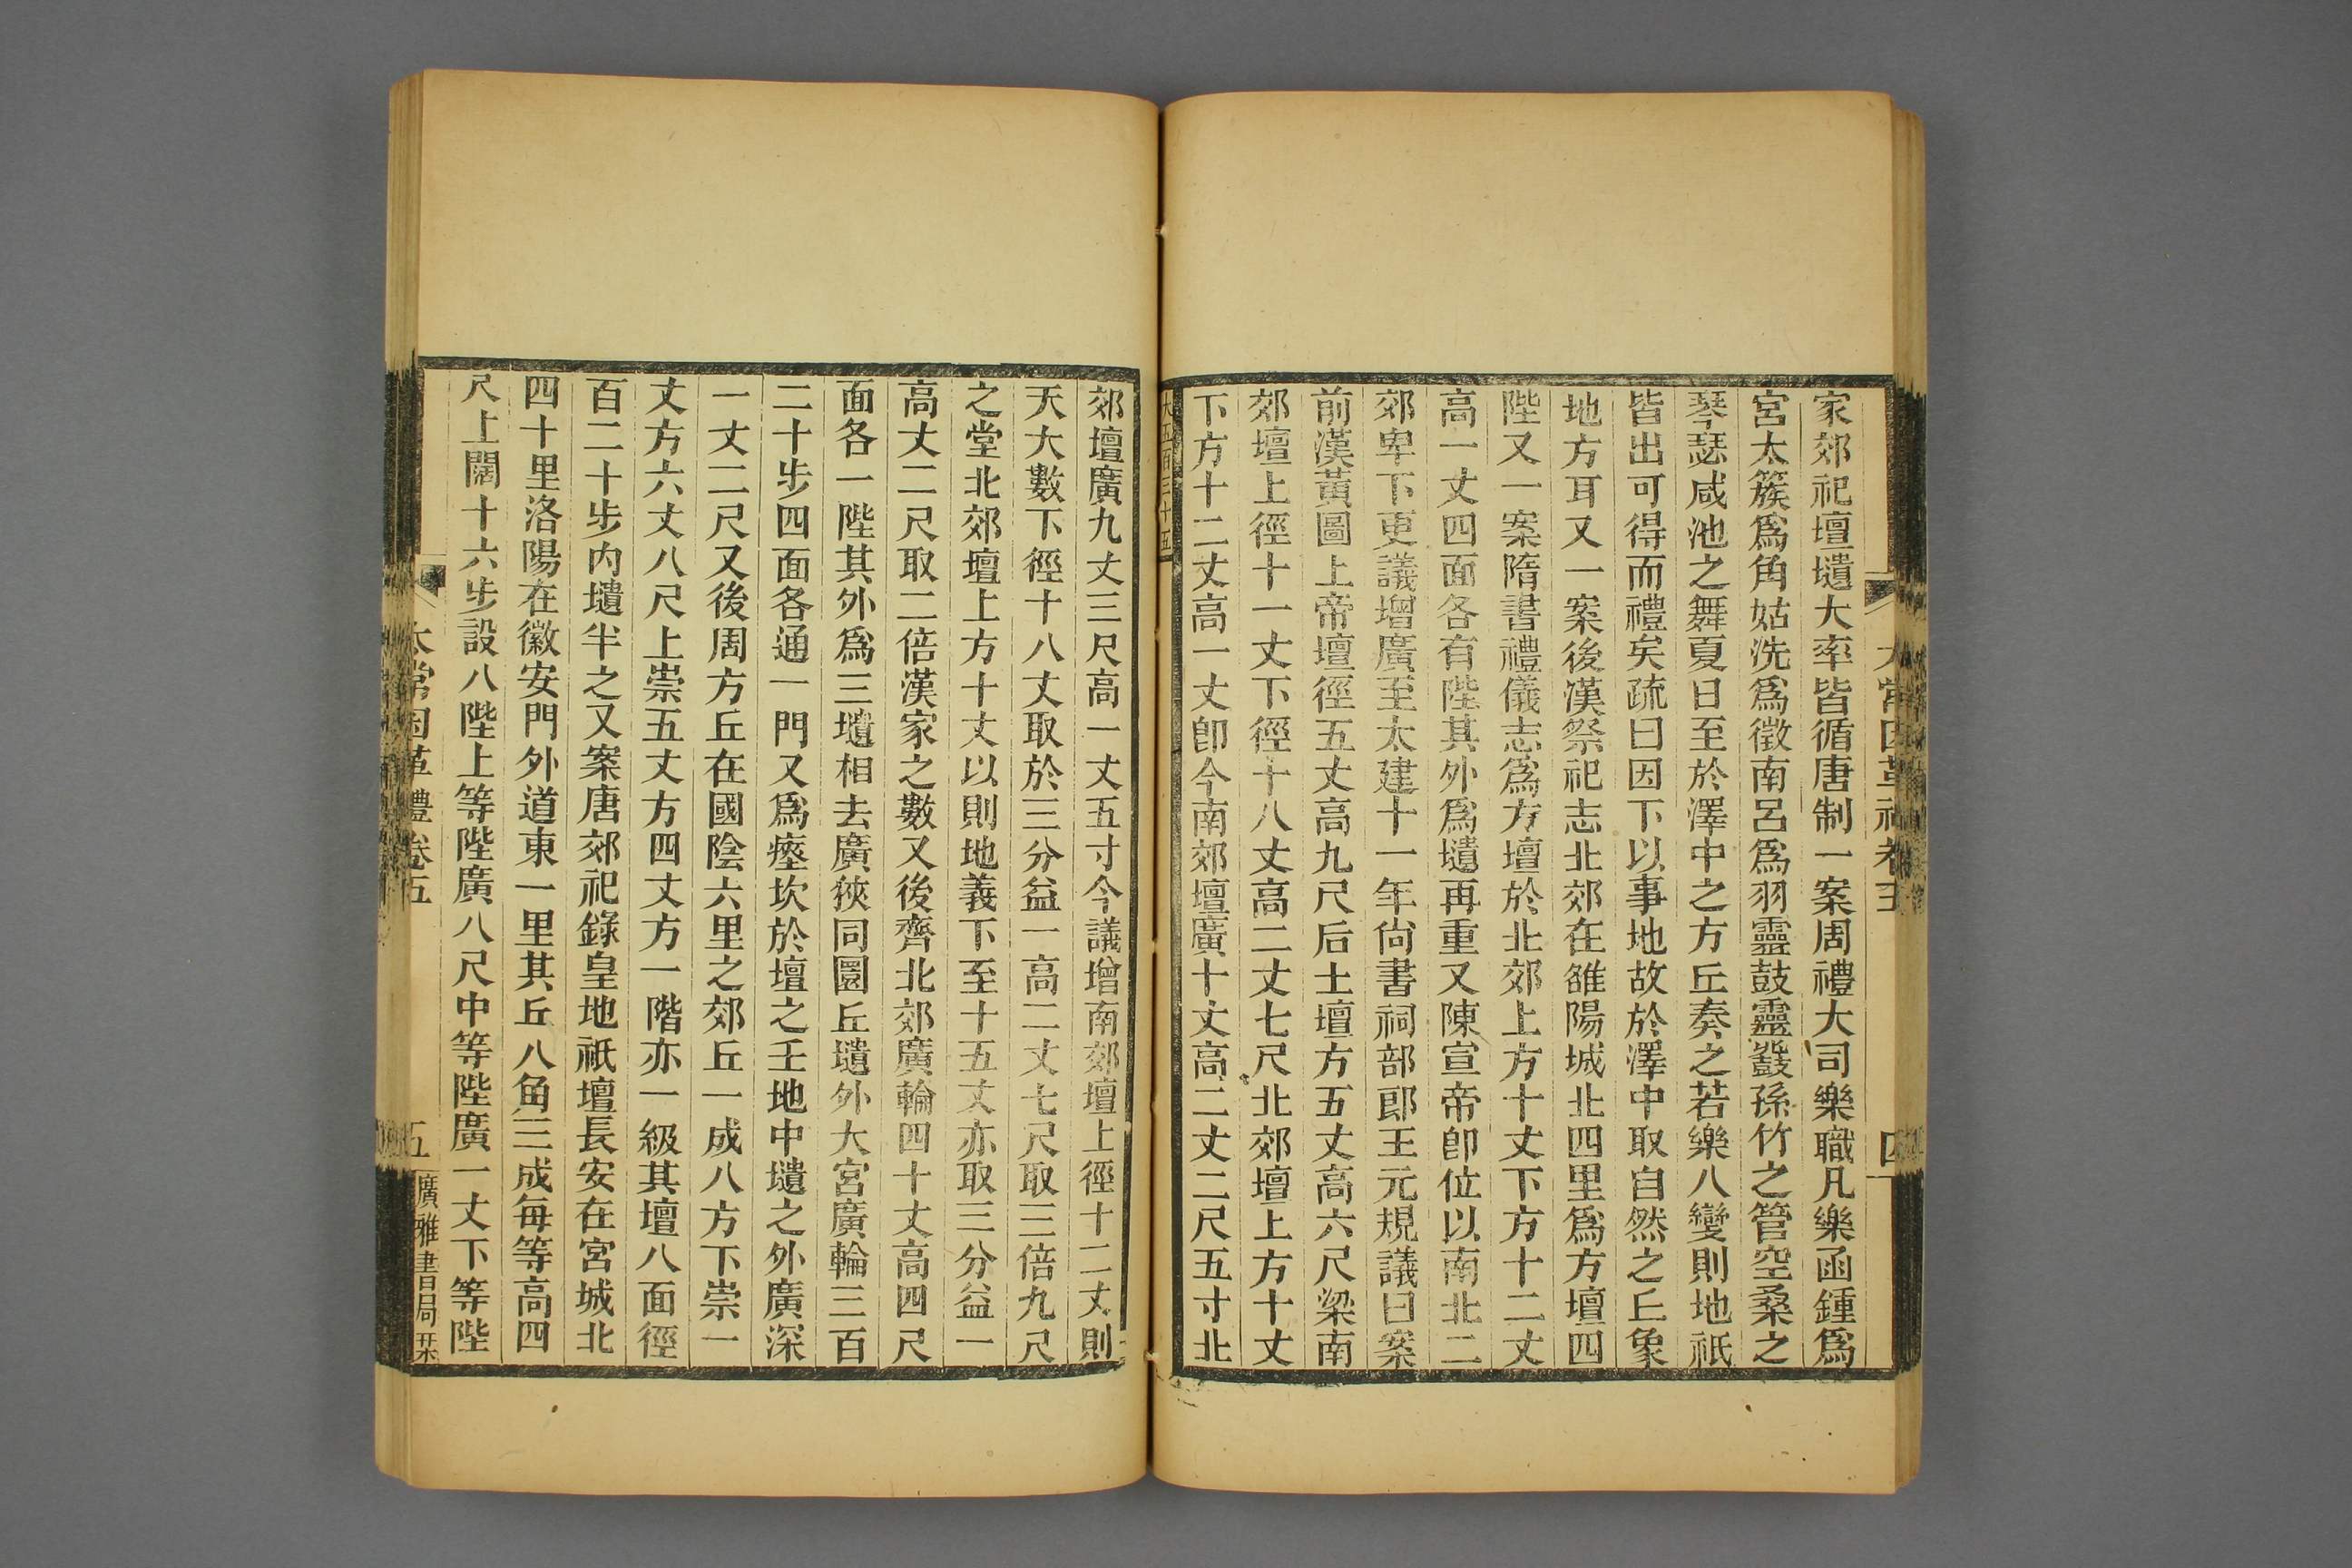 家郊祀壇壝大率皆循唐制一案周禮大司樂職凡樂函鍾爲
宮太簇爲角姑洗爲徵南呂爲羽靈鼓靈鼗孫竹之管空桑之
琴瑟咸池之舞夏日至於澤中之方丘奏之若樂八變則地祇
皆出可得而禮矣疏曰因下以事地故於澤中取自然之丘象
地方耳又一案後漢祭祀志北郊在雒陽城北四里爲方壇四
陛又一案隋書禮儀志爲方壇於北郊上方十丈下方十二丈
高一丈四面各有陛其外爲壝再重又陳宣帝卽位以南北二
郊卑下更議增廣至太建十一年尚書祠部郎王元規議曰案
前漢黃圖上帝壇徑五丈高九尺后土壇方五丈高六尺梁南
郊壇上徑十一丈下徑十八丈高二丈七尺北郊壇上方十丈
下方十二丈高一丈卽今南郊壇廣十丈高二丈二尺五寸北
大五百三十五
郊壇廣九丈三尺高一丈五寸今議增南郊壇上徑十二丈則
天大數下徑十八丈取於三分益一高二丈七尺取三倍九尺
之堂北郊壇上方十丈以則地義下至十五丈亦取三分益一
高丈二尺取二倍漢家之數又後齊北郊廣輪四十丈高四尺
面各一陛其外爲三壝相去廣狹同圜丘壝外大宮廣輪三百
二十步四面各通一門又爲瘞坎於壇之壬地中壝之外廣深
一丈二尺又後周方丘在國陰六里之郊丘一成八方下崇一
丈方六丈八尺上崇五丈方四丈方一階亦一級其壇八面徑
百二十步內壝半之又案唐郊祀錄皇地祇壇長安在宮城北
四十里洛陽在徽安門外道東一里其丘八角三成每等高四
尺上闊十六步設八陛上等陛廣八尺中等陛廣一丈下等陛
太常因革禮卷五
五
廣雅書局栞